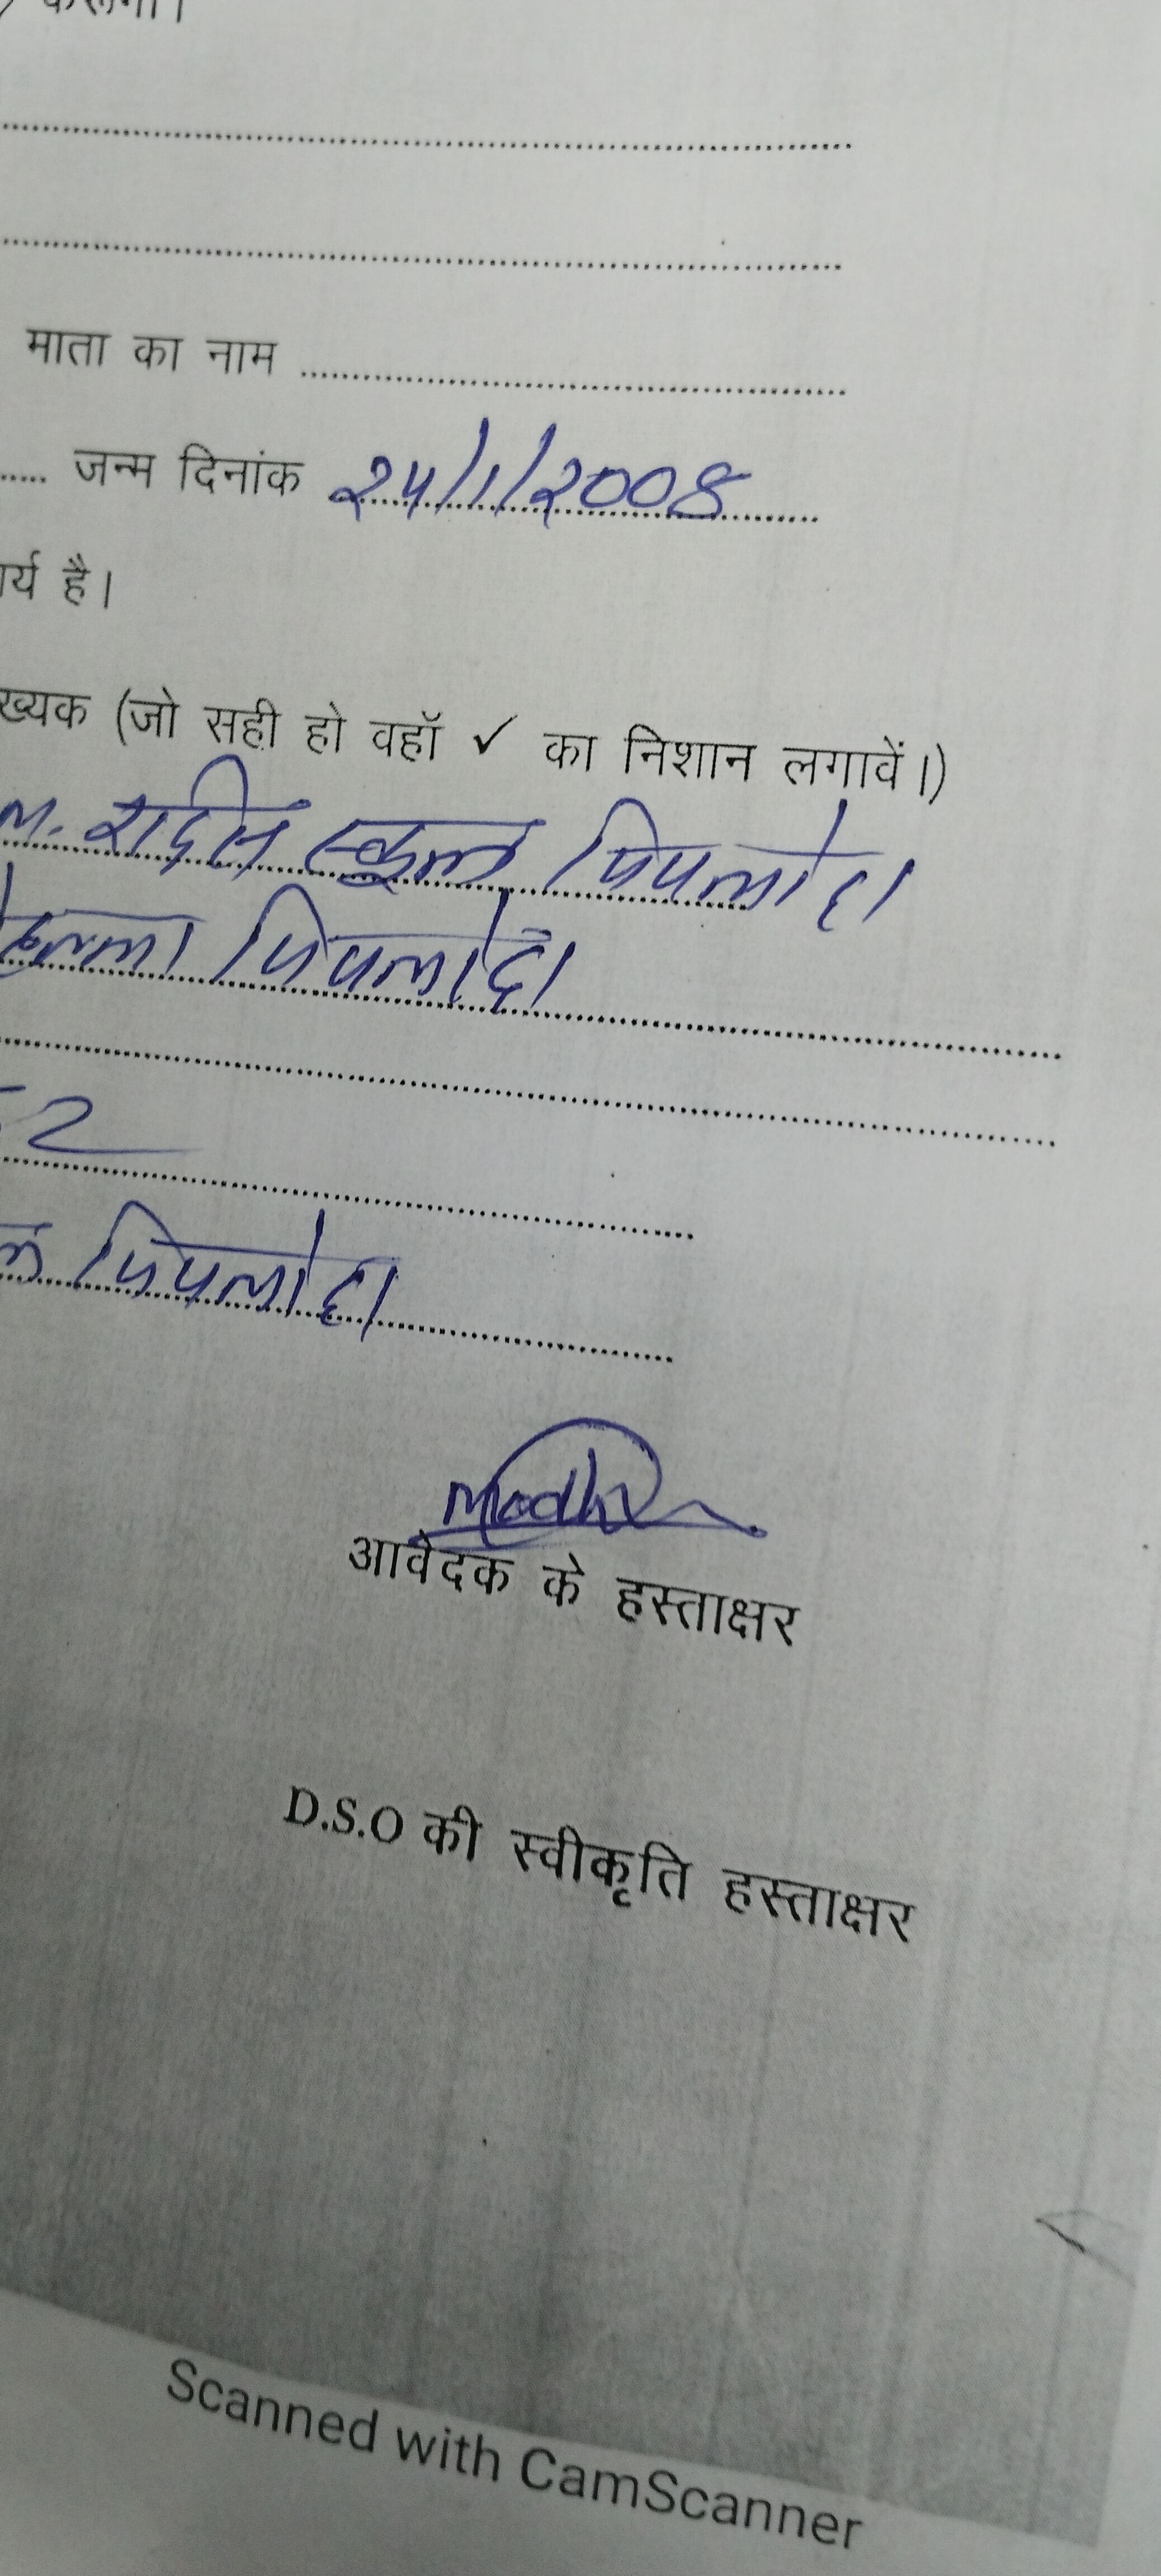 करूंगा।
माता का नाम
जन्म दिनांक 24/1/2008
र्य है।
ख्यक (जो सही हो वहॉ ✓ का निशान लगावें।)
म. राईस स्कूल पिपलोदा
पिपलोदा
52
पिपलोदा
Madhu
आवेदक के हस्ताक्षर
D.S.O की स्वीकृति हस्ताक्षर
Scanned with CamScanner